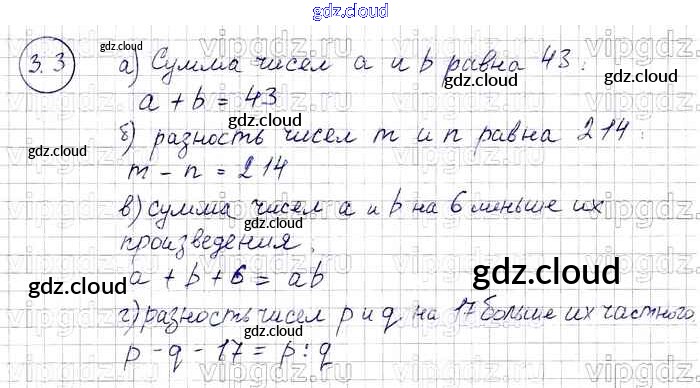 gdz.cloud
3.3 а) Сумма чисел a и b равна 43:
a + b = 43
б) разность чисел m и n равна 214:
m - n = 214
в) сумма чисел a и b на 6 меньше их
произведения.
a + b + 6 = ab
г) разность чисел p и q на 17 больше их частного
p - q - 17 = p : q
gdz.cloud
gdz.cloud
gdz.cloud
gdz.cloud
gdz.cloud
gdz.cloud
gdz.cloud
gdz.cloud
gdz.cloud
gdz.cloud